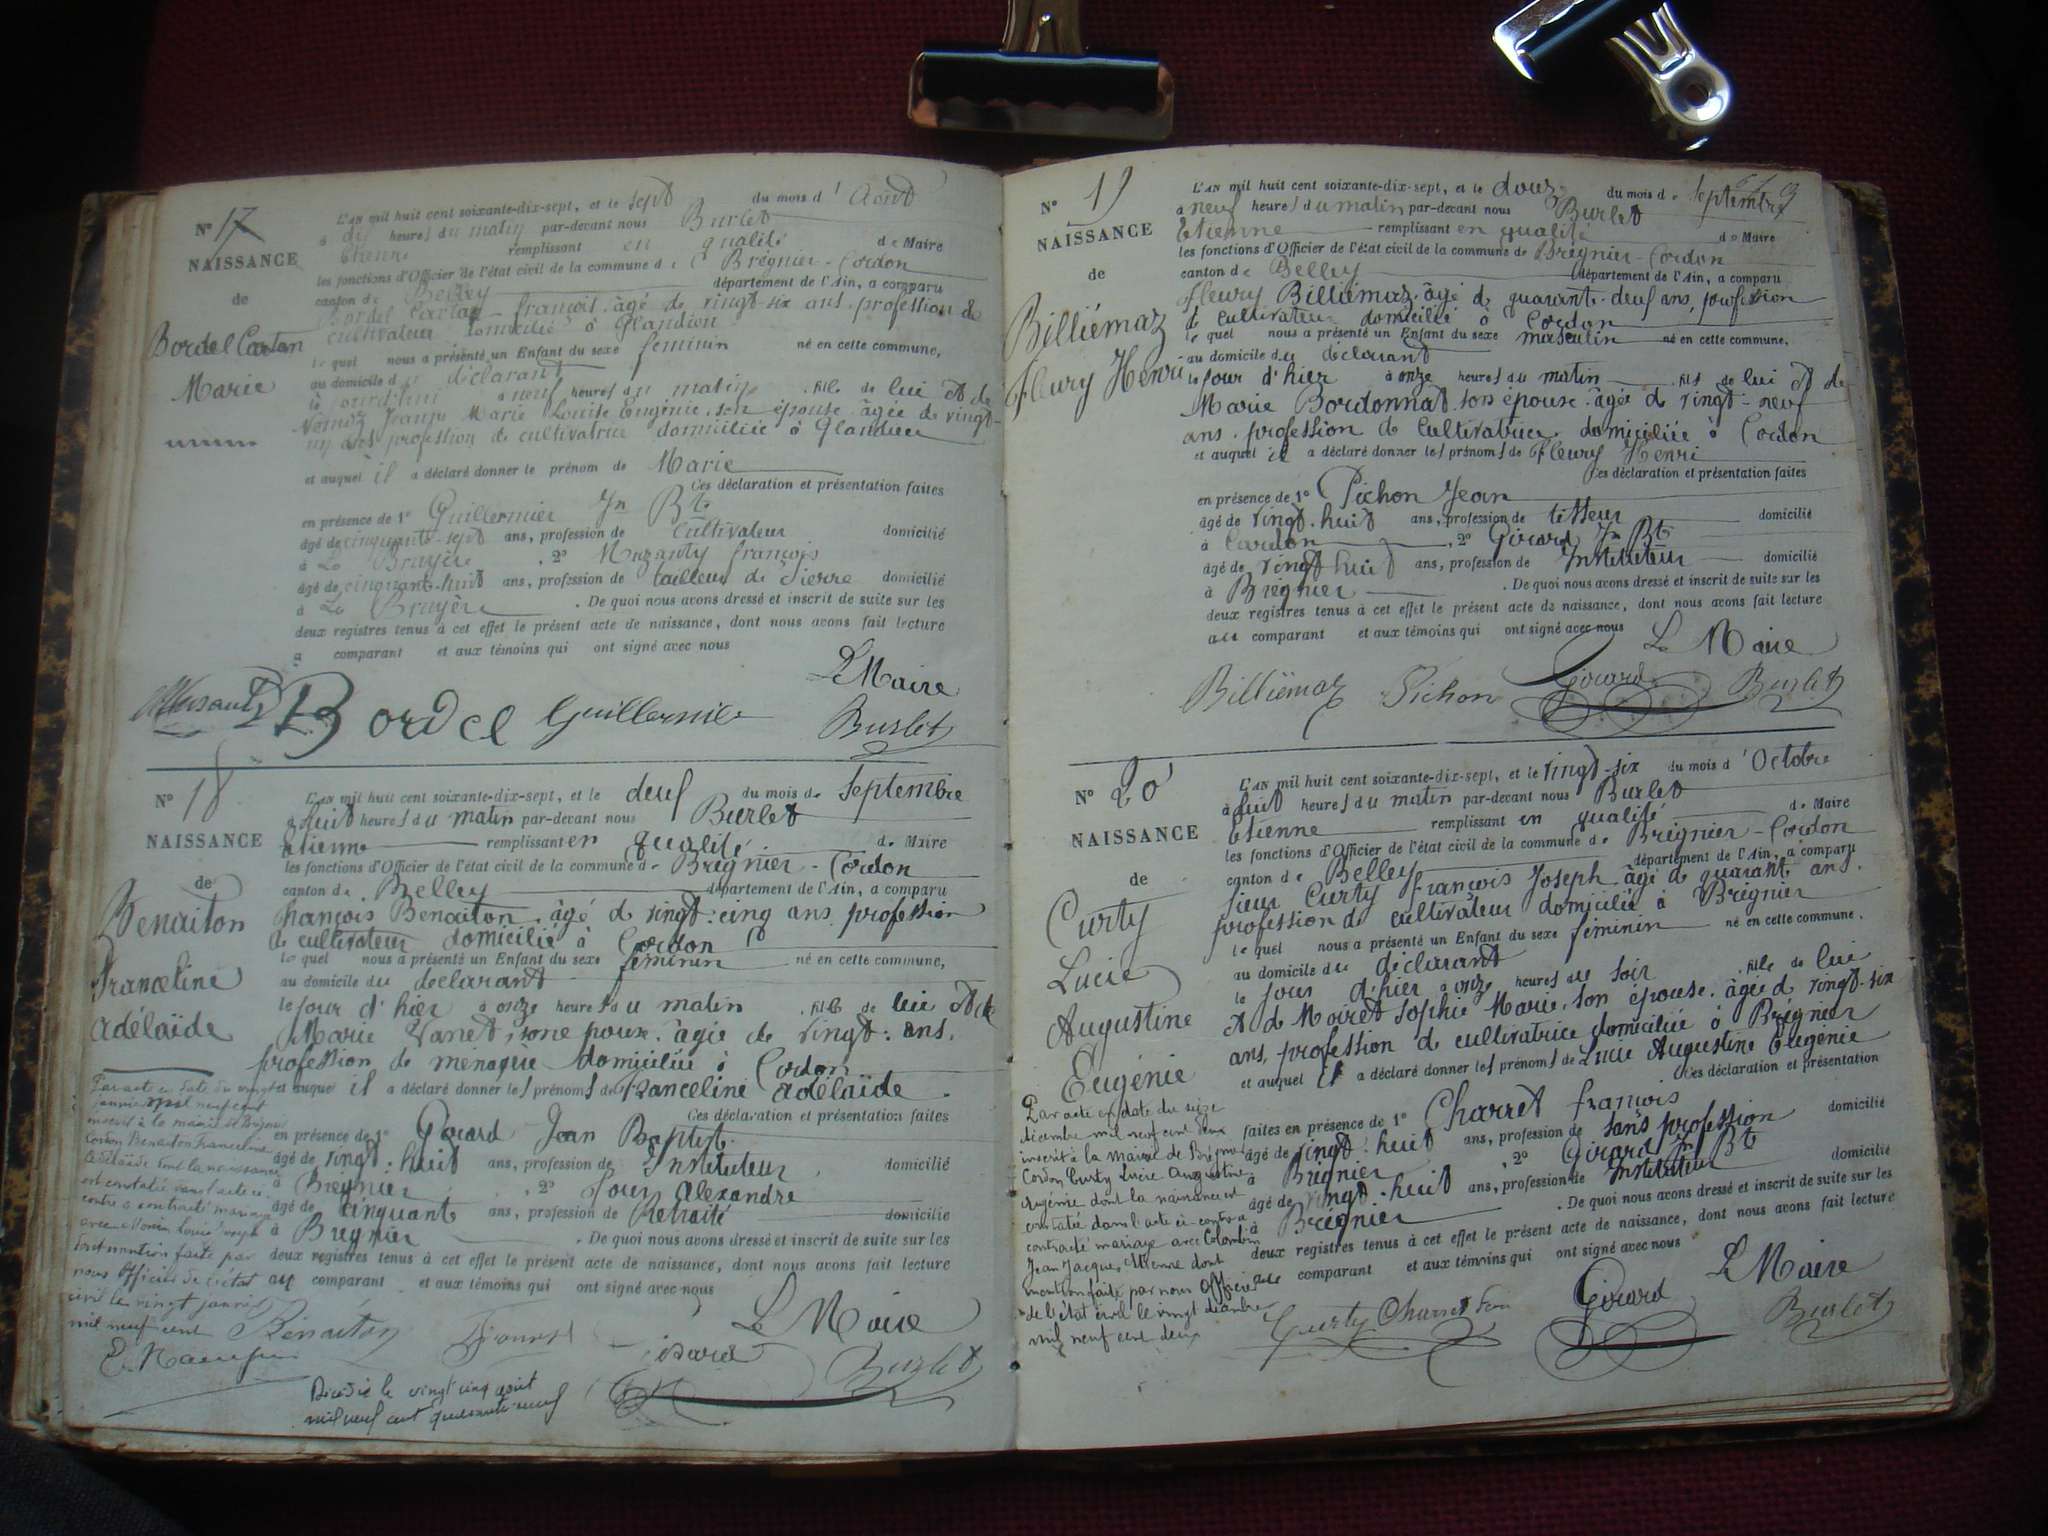 N° 17
NAISSANCE
de
Bordel Carton
Marie
L'AN mil huit cent soixante-dix-sept, et le sept du mois d' Août
à dix heures du matin par-devant nous Burlet
Etienne remplissant en qualité de Maire
les fonctions d'Officier de l'état civil de la commune de Brégnier-Cordon
canton de Belley département de l'Ain, a comparu
Bordel Carton François âgé de vingt-six ans, profession de
cultivateur domicilié à Glandieu
le quel nous a présenté un Enfant du sexe féminin né en cette commune,
au domicile du déclarant
le jourd'hui à neuf heures du matin, fille de lui et de
Jeanne Marie Louise Eugénie, son épouse âgée de vingt-
un ans profession de cultivatrice domiciliée à Glandieu
et auquel il a déclaré donner le prénom de Marie
Ces déclaration et présentation faites
en présence de 1° Guillermier Jn Bte
âgé de cinquante-sept ans, profession de cultivateur domicilié
à La Bruyère, 2° François
âgé de cinquante-huit ans, profession de tailleur de Pierre domicilié
à La Bruyère. De quoi nous avons dressé et inscrit de suite sur les
deux registres tenus à cet effet le présent acte de naissance, dont nous avons fait lecture
a comparant et aux témoins qui ont signé avec nous
Le Maire
Bordel Guillermier Burlet
N° 18
NAISSANCE
de
Benaiton
Franceline
Adélaïde
L'AN mil huit cent soixante-dix-sept, et le deux du mois de Septembre
à huit heures du matin par-devant nous Burlet
Etienne remplissant en qualité de Maire
les fonctions d'Officier de l'état civil de la commune de Brégnier-Cordon
canton de Belley département de l'Ain, a comparu
François Benaiton, âgé de vingt-cinq ans, profession
de cultivateur domicilié à Cordon
le quel nous a présenté un Enfant du sexe féminin né en cette commune,
au domicile du déclarant
le jour d'hier à onze heures du matin, fille de lui et de
Marie Vanet, son epouse, âgée de vingt ans,
profession de menagère domiciliée à Cordon
et auquel il a déclaré donner les prénoms de Franceline Adélaïde.
Ces déclaration et présentation faites
en présence de 1° Girard Jean Baptiste
âgé de vingt-huit ans, profession de Instituteur, domicilié
à Brégnier, 2° Jour Alexandre
âgé de cinquante ans, profession de Retraité domicilié
à Brégnier. De quoi nous avons dressé et inscrit de suite sur les
deux registres tenus à cet effet le présent acte de naissance, dont nous avons fait lecture
au comparant et aux témoins qui ont signé avec nous
Le Maire
Bénaiton Girard Burlet
Par acte en date du vingt
janvier mil neuf cent
inscrit à la mairie de Brégnier
Cordon Benaiton Franceline
Adélaïde dont la naissance
est constatée dans l'acte ci-
contre a contracté mariage
avec Louis Joseph
dont mention faite par
nous Officier de l'état
civil le vingt janvier
mil neuf cent
Décédée le vingt cinq août
mil neuf cent quarante-neuf
N° 19
NAISSANCE
de
Billiémaz
Fleury Henri
L'AN mil huit cent soixante-dix-sept, et le douze du mois de Septembre
à neuf heures du matin par-devant nous Burlet
Etienne remplissant en qualité de Maire
les fonctions d'Officier de l'état civil de la commune de Brégnier-Cordon
canton de Belley département de l'Ain, a comparu
Fleury Billiémaz, âgé de quarante-deux ans, profession
de cultivateur domicilié à Cordon
le quel nous a présenté un Enfant du sexe masculin né en cette commune,
au domicile du déclarant
le jour d'hier à onze heures du matin fils de lui et de
Marie Bordonnat son épouse, âgée de vingt-neuf
ans, profession de cultivatrice domiciliée à Cordon
et auquel il a déclaré donner les prénoms de Fleury Henri
Ces déclaration et présentation faites
en présence de 1° Pichon Jean
âgé de vingt-huit ans, profession de tisseur domicilié
à Cordon, 2° Girard Jn Bte
âgé de vingt huit ans, profession de Instituteur domicilié
à Brégnier. De quoi nous avons dressé et inscrit de suite sur les
deux registres tenus à cet effet le présent acte de naissance, dont nous avons fait lecture
au comparant et aux témoins qui ont signé avec nous
Le Maire
Billiémaz Pichon Girard Burlet
N° 20
NAISSANCE
de
Curty
Lucie
Augustine
Eugénie
L'AN mil huit cent soixante-dix-sept, et le vingt-six du mois d' Octobre
à huit heures du matin par-devant nous Burlet
Etienne remplissant en qualité de Maire
les fonctions d'Officier de l'état civil de la commune de Brégnier-Cordon
canton de Belley département de l'Ain, a comparu
sieur Curty François Joseph âgé de quarante ans,
profession de cultivateur domicilié à Brégnier
le quel nous a présenté un Enfant du sexe féminin né en cette commune,
au domicile du déclarant
le jour d'hier à onze heures du soir, fille de lui
et de Moiret Sophie Marie, son épouse, âgée de vingt-six
ans, profession de cultivatrice domiciliée à Brégnier
et auquel il a déclaré donner les prénoms de Lucie Augustine Eugénie
Ces déclaration et présentation
faites en présence de 1° Charret François
âgé de vingt-huit ans, profession de sans profession domicilié
à Brégnier, 2° Girard Jn Bte
âgé de vingt-huit ans, profession de Instituteur domicilié
à Brégnier. De quoi nous avons dressé et inscrit de suite sur les
deux registres tenus à cet effet le présent acte de naissance, dont nous avons fait lecture
au comparant et aux témoins qui ont signé avec nous
Le Maire
Curty Charret Girard Burlet
Par acte en date du seize
décembre mil neuf cent deux
inscrit à la mairie de Brégnier
Cordon Curty Lucie Augustine
Eugénie dont la naissance est
constatée dans l'acte ci-contre a
contracté mariage avec Colombin
Jean Jacques Etienne dont
mention faite par nous Officier
de l'état civil le vingt décembre
mil neuf cent deux